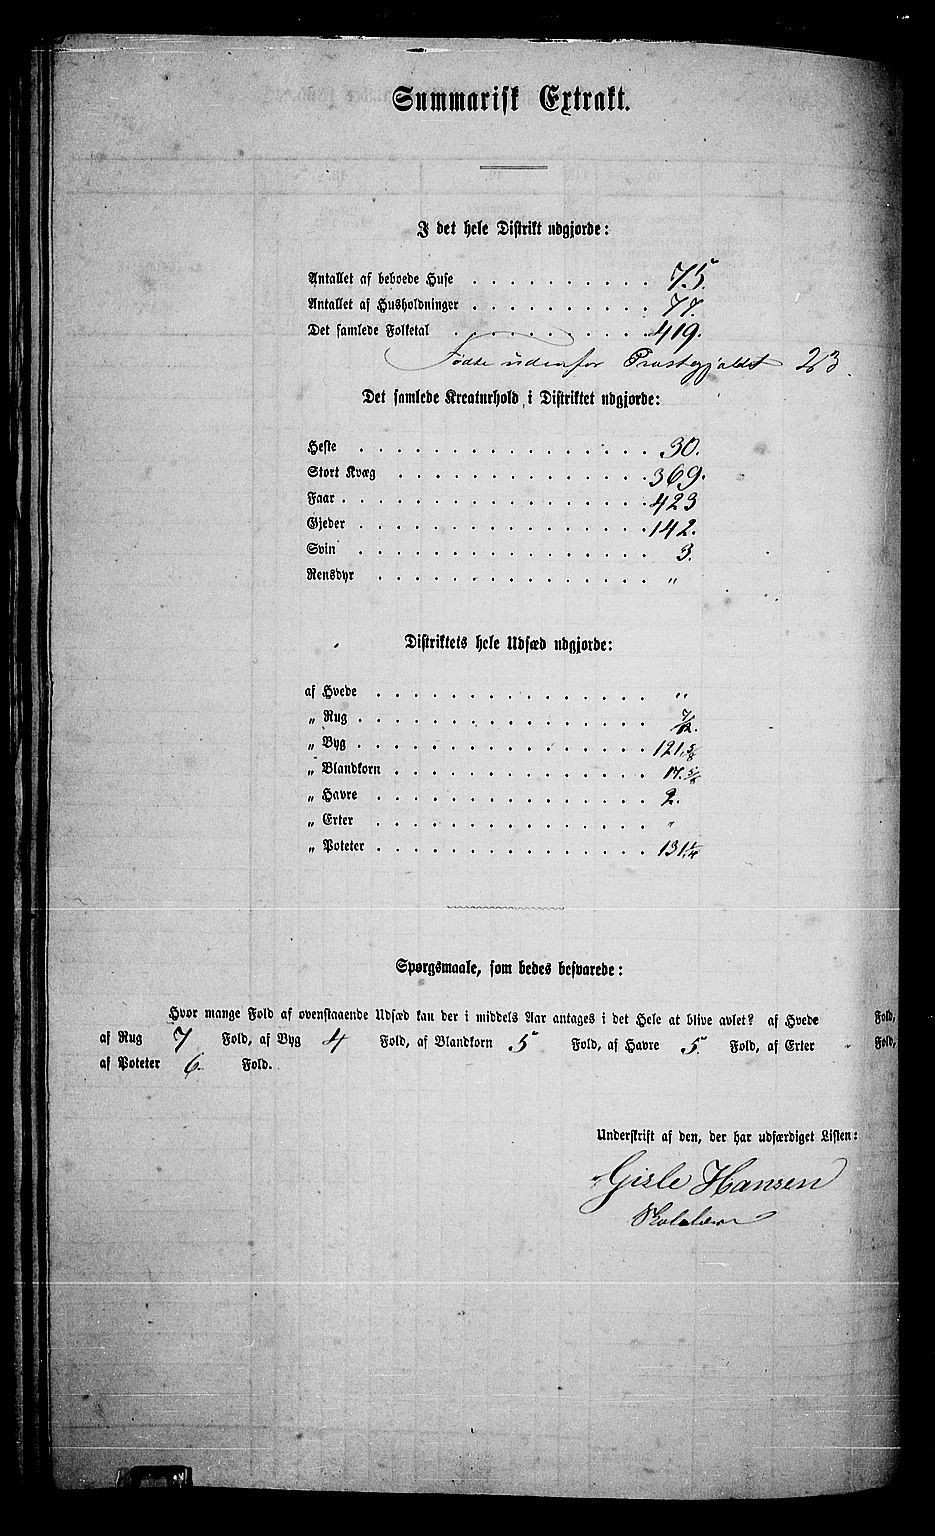 Summarisk Extrakt.
I det hele Distrikt udgjorde:
Antallet af beboede Huse . . . . . . . . . . 75.
Antallet af Husholdninger . . . . . . . . . . 77.
Det samlede Folketal . . . . . . . . . . 419.
Fødte udenfor Præstegjeldet 23.
Det samlede Kreaturhold i Distriktet udgjorde:
Heste . . . . . . . . . . 30.
Stort Kvæg . . . . . . . . . . 369.
Faar . . . . . . . . . . 423
Gjeder . . . . . . . . . . 142.
Svin . . . . . . . . . . 3.
Rensdyr . . . . . . . . . . „
Distriktets hele Udsæd udgjorde:
af Hvede . . . . . . . . . . „
„ Rug . . . . . . . . . . 7/12.
„ Byg . . . . . . . . . . 121.5/8
„ Blandkorn . . . . . . . . . . 17.5/8
„ Havre . . . . . . . . . . 2.
„ Erter . . . . . . . . . . „
„ Poteter . . . . . . . . . . 131.1/4
Spørgsmaale, som bedes besvarede:
Hvor mange Fold af ovenstaaende Udsæd kan der i middels Aar antages i det Hele at blive avlet? af Hvede Fold,
af Rug 7 Fold, af Byg 4 Fold, af Blandkorn 5 Fold, af Havre 5. Fold, af Erter „ Fold,
af Poteter 6. Fold.
Underskrift af den, der har udfærdiget Listen:
Gisle Hansen